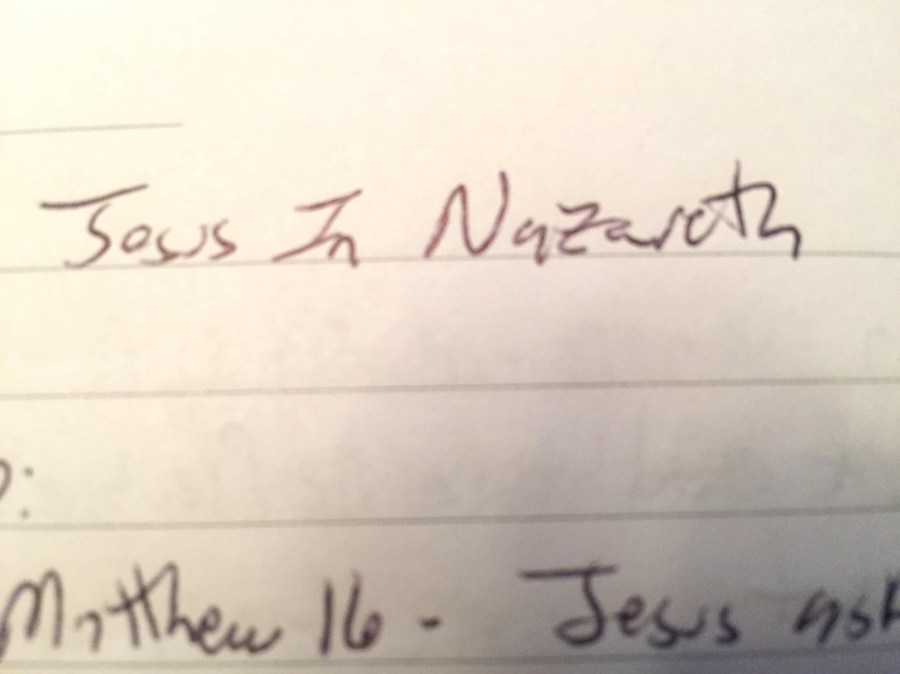 Jesus In Nazareth
:
Matthew 16 - Jesus ask